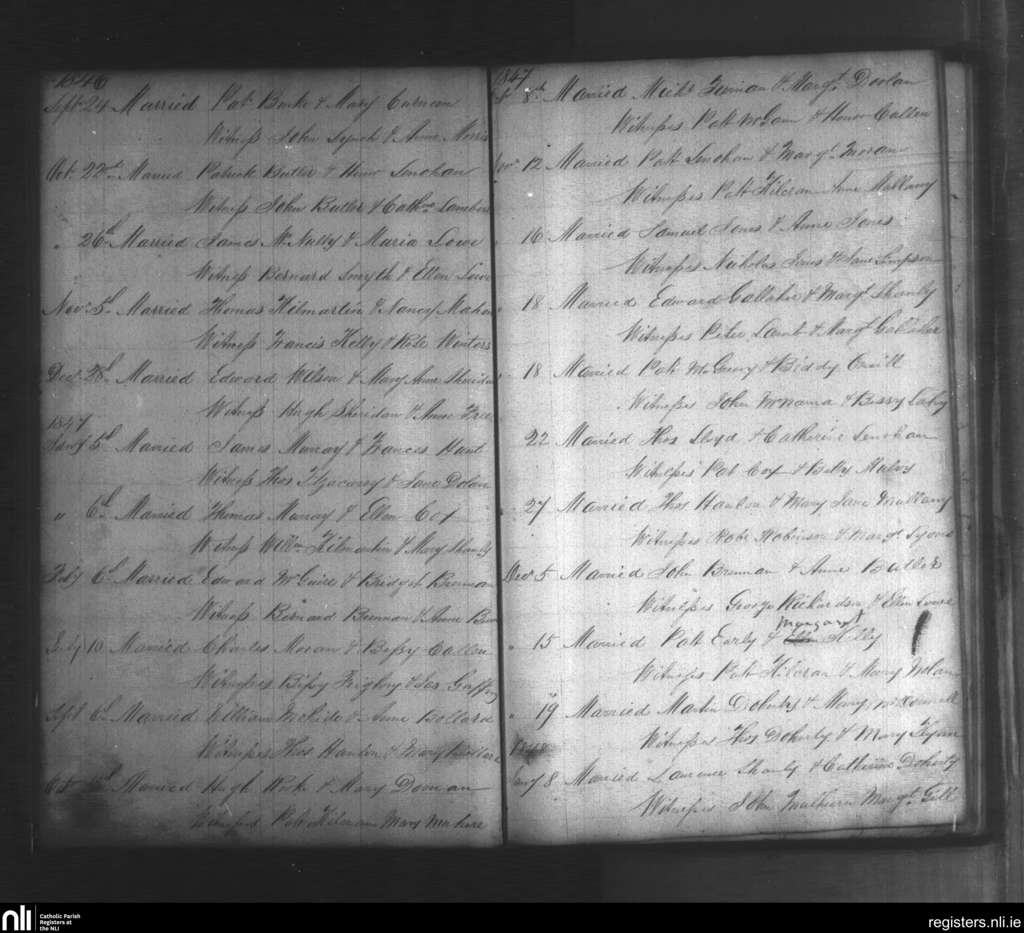 1846
Sept 24 Married Pat Burke & Mary
Witness John Lynch & Anne Morris
Oct. 22nd Married Patrick Butler & Honor Lenohan
Witness John Butler & Cathne Lambert
" 26th Married James McNally & Maria Lowe
Witness Bernard Smyth & Ellen Lowe
Novr 5th Married Thomas Kilmartin & Nancy Mahon
Witness Francis Kelly & Rose Winters
Decr 28th Married Edward Wilson & Mary Anne Sheridan
Witness Hugh Sheridan & Anne
1847
5th Married James Murray & Frances Hunt
Witness Thos & Jane Dolan
" 6th Married Thomas Murray & Ellen Cox
Witness Willm Kilmartin & Mary Shanly
Feby 6th Married Edward McGuire & Bridget Brennan
Witness Bernard Brennan & Anne
July 10 Married Charles Moran & Bessy Cullen
Witnesses Bessy & Jas Gaffny
Sept 6th Married William & Anne Bollard
Witnesses Thos Hanlon & Mary Butler
Oct Married Hugh & Mary
Pat Kilcran Mary
1847
8th Married Michl & Margt Doolan
Witnesses Patt & Honor Cullen
Novr 12 Married Patt Lenohan & Margt Moran
Witnesses Patt Kilcran Anne Mallany
" 16 Married Samuel Jones & Anne Jones
Witnesses Nicholas Jones & Jane Simpson
" 18 Married Edward Gallaher & Margt Shanly
Witnesses Peter Lamb & Margt Gallaher
" 18 Married Patt & Biddy
Witnesses John McNama & Bessy
22 Married Thos Lloyd & Catherine Lenohan
Witnesses Pat Cox & Betty
" 27 Married Thos Hanlon & Mary Jane Mullany
Witnesses Robt Robinson & Margt Lyons
Decr 5 Married John Brennan & Anne Butler
Witnesses George Richardson & Ellen
Margaret
" 15 Married Patt Early & Kelly
Witnesses Patt Kilcran & Mary Nolan
" 19 Married Martin Doherty & Mary
Witnesses Thos Doherty & Mary Flynn
1848
Jany 8 Married Laurence Shanly & Catherine Doherty
Witnesses John Mulhern Margt Gill
nli
Catholic Parish
Registers at
the NLI
registers.nli.ie